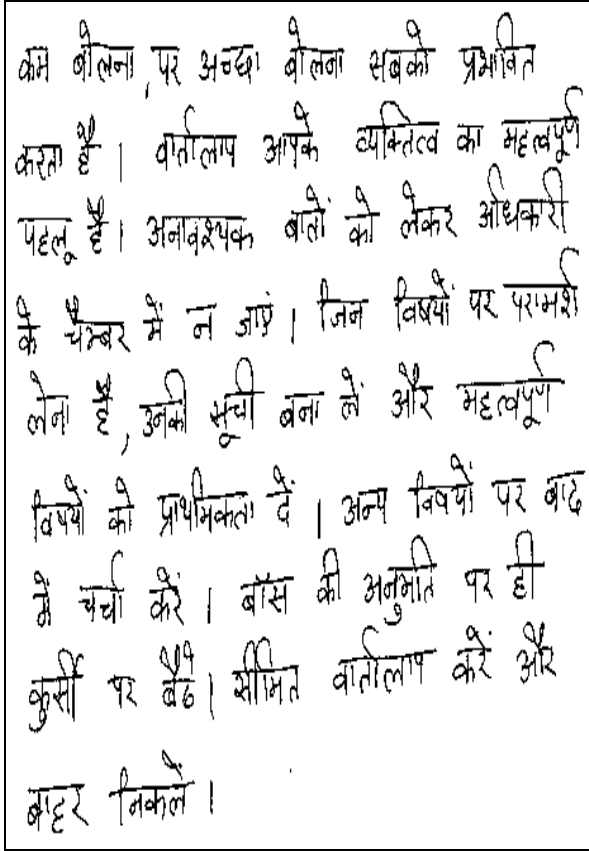 कम बोलना, पर अच्छा बोलना सबको प्रभावित
करता है। वार्तालाप आपके व्यक्तित्व का महत्वपूर्ण
पहलू है। अनावश्यक बातों को लेकर अधिकारी
के चैम्बर में न जाएं। जिन विषयों पर परामर्श
लेना है, उनकी सूची बना लें और महत्वपूर्ण
विषयों को प्राथमिकता दें। अन्य विषयों पर बाद
में चर्चा करें। बॉस की अनुमति पर ही
कुर्सी पर बैठें। सीमित वार्तालाप करें और
बाहर निकलें।